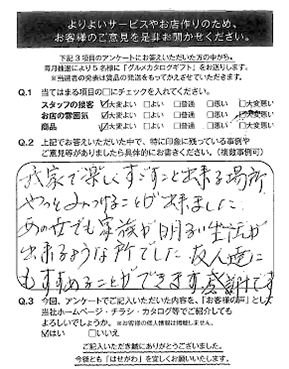 よりよいサービスやお店作りのため、
お客様のご意見を是非お聞かせください。
下記3項目のアンケートにお答えいただいた方の中から、
毎月抽選により5名様に「グルメカタログギフト」をお送りします。
※当選者の発表は賞品の発送をもってかえさせていただきます。
Q.1 当てはまる項目の□にチェックを入れてください。
スタッフの接客 ☑大変よい □よい □普通 □悪い □大変悪い
お店の雰囲気 ☑大変よい □よい □普通 □悪い □大変悪い
商品 ☑大変よい □よい □普通 □悪い □大変悪い
Q.2 上記でお答えいただいた中で、特に印象に残っている事例や
ご意見等がありましたら具体的にお書きください。（複数事例可）
我家で楽しくすごすこと出来る場所
やっとみつけることが出来ました
あの世でも家族が明るい生活が
出来るような所でした 友人達に
もすすめることができます 感謝です
Q.3 今回、アンケートでご記入いただいた内容を、「お客様の声」として
当社ホームページ・チラシ・カタログ等でご紹介しても
よろしいでしょうか。※お客様の個人情報は掲載しません。
☑はい □いいえ
ご記入いただき誠にありがとうございました。
今後とも「はせがわ」を宜しくお願いいたします。